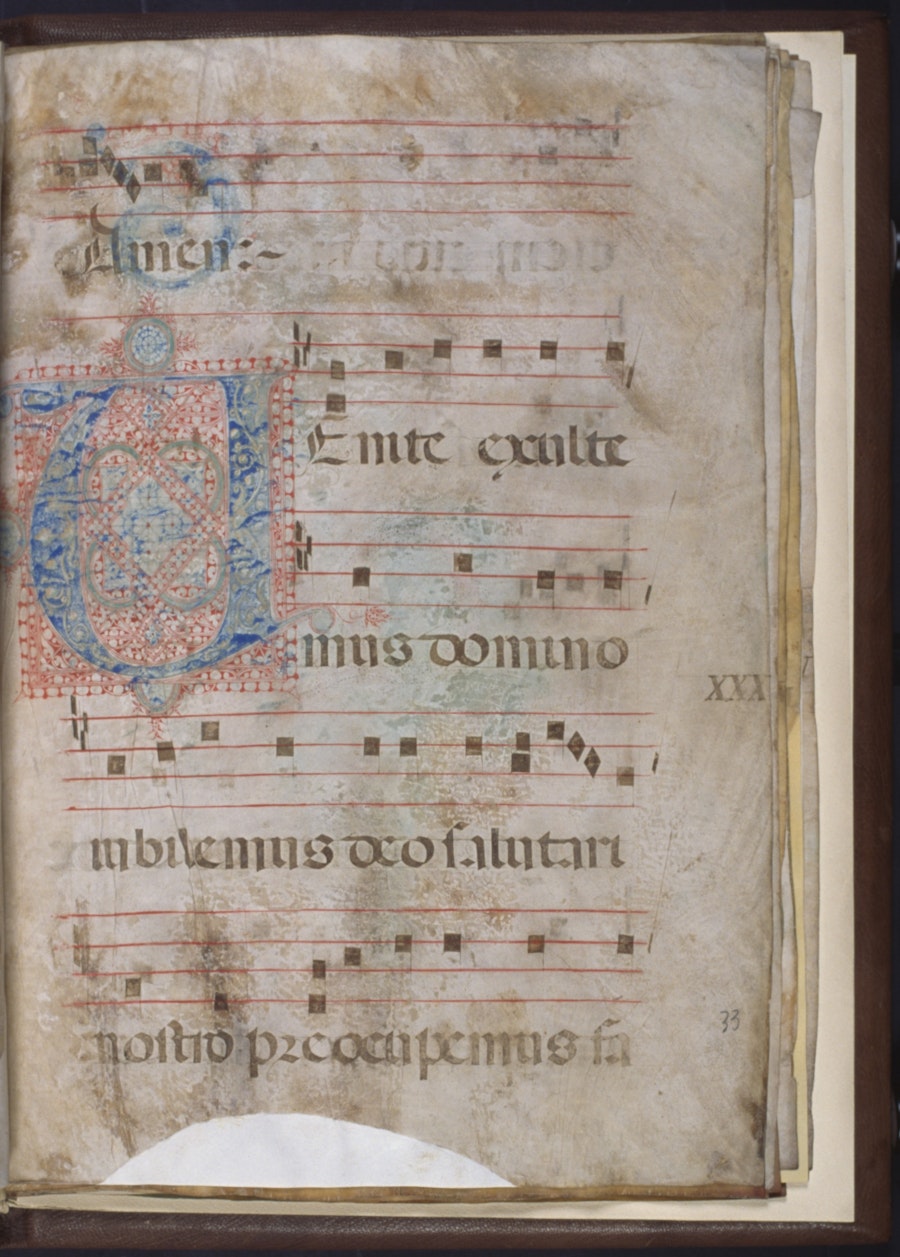 Amen:~
VEnite exulte
mus domino
XXX
iubilemus deo salutari
nostro preocupemus fa
33